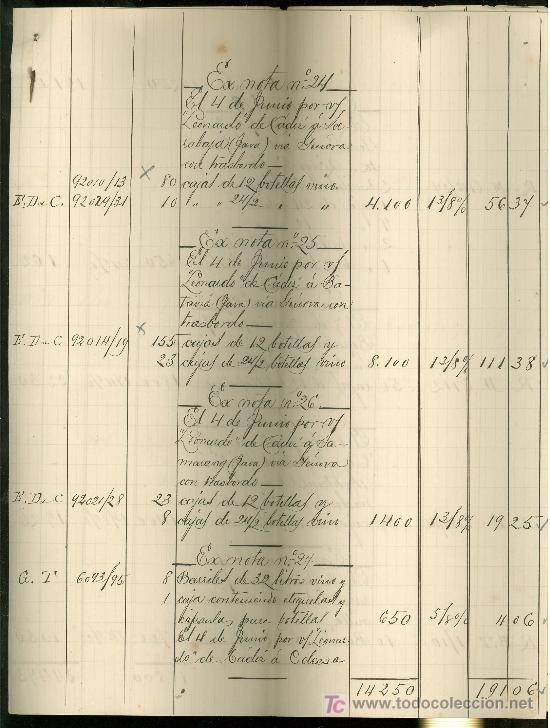 Ex nota nº 24
El 4 de Junio por v/
"Leonardo" de Cádiz á Sa
rabaja (Java) via Génova
con trasbordo
92010/13 80 cajas de 12 botellas vino
F. D. C. 92029/31 10 " " 24/2 " " 4.100 1 3/8 % 56 37
Ex nota nº 25
El 4 de Junio por v/
"Leonardo" de Cádiz á Ba-
tavia (Java) via Génova con
trasbordo
F. D. C. 92014/19 155 cajas de 12 botellas y
23 cajas de 24/2 botellas vino 8.100 1 3/8 % 111 38
Ex nota nº 26
El 4 de Junio por v/
"Leonardo" de Cádiz á Sa-
marang (Java) via Génova
con trasbordo
F. D. C. 92021/28 23 cajas de 12 botellas y
8 cajas de 24/2 botellas vino 1400 1 3/8 % 19 25
Ex nota nº 27
G. T 6093/95 8 Barriles de 32 litros vino y
1 caja conteniendo etiquetas y
cápsulas para botellas 650 5/8 % 4 06
El 4 de Junio por v/ "Leonar
do" de Cádiz á Odessa
14250 191 06
TC www.todocoleccion.net